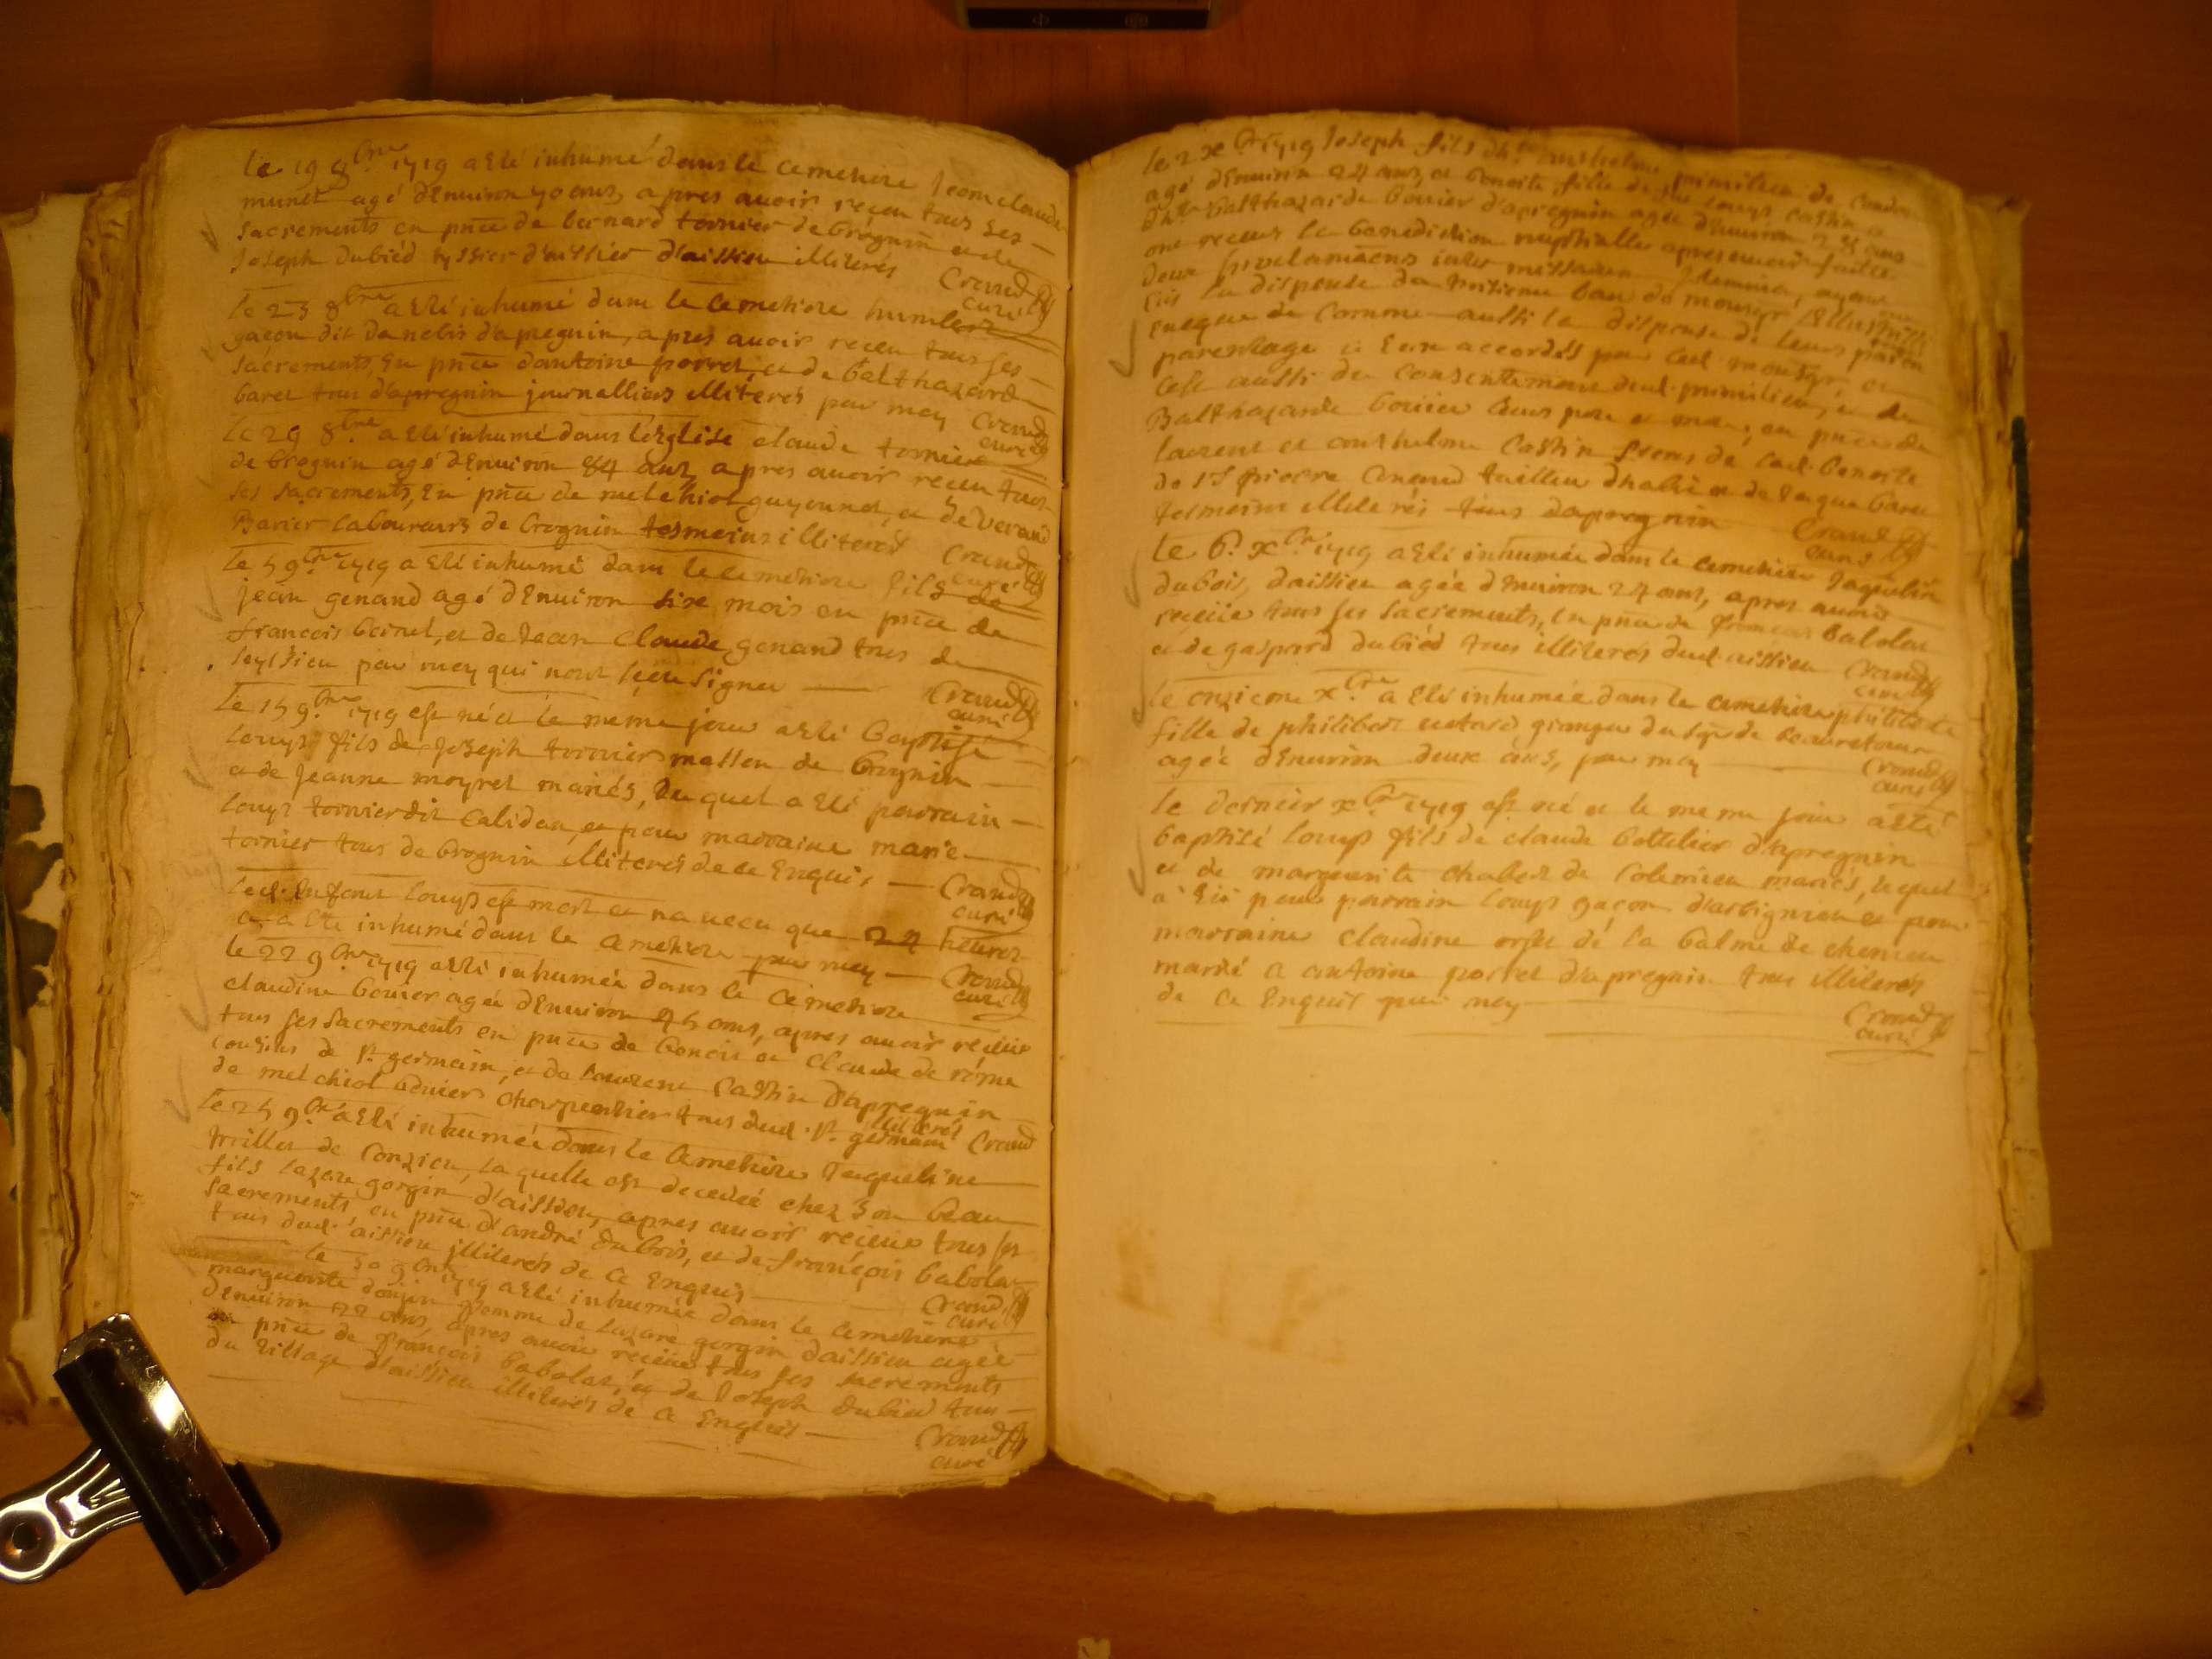 le 19 8bre 1719 a esté inhumé dans le cemetiere Jeanclaude
munet agé denuiron 70 ans, apres auoir reçeu tous ses
sacrements en pnce de bernard tornier de brognin et de
Joseph dubied tyssier d'aissieu illiterés Crand
curé
le 23 8bre a esté inhumé dans le cemetiere humbert
gacon dit danebis dapregnin, apres auoir receu tous ses
sacrements, En pnce dantoine porret, et de balthazard
baret tous dapregnin journalliers illiterés par moy Crand
curé
le 29 8bre a esté inhumé dans leglise claude tornier
de brognin agé denuiron 84 ans, apres auoir receu tous
ses sacrements, En pnce de melchiol guyonnet, et de verand
Barier laboureurs de brognin tesmoins illiterés Crand
curé
le 5 9bre 1719 a esté inhumé dans le cemetiere fils de
jean genand agé denuiron sixe mois en pnce de
francois beinet, et de Jean claude genand tous de
seyssieu par moy qui nont sceu signer Crand
curé
le 15 9bre 1719 est né et le meme jour a esté baptisé
louys fils de Joseph tornier masson de brognin
et de Jeanne moyret mariés, duquel a esté parrain
louys tornier dit calidan, et pour marraine marie
tornier tous de brognin illiterés de ce Enquis Crand
curé
led. Enfant louys est mort et na uecu que 24 heures
et a esté inhumé dans le cemetiere par moy Crand
curé
le 22 9bre 1719 a esté inhumée dans le cemetiere
claudine bouier agée denuiron 45 ans, apres auoir reçeue
tous ses sacrements en pnce de benoit et claude de rome
cousins de st. germain, et de laurent castin dapregnin
de melchiol bouier charpentier tous dud. st. germain illiterés Crand
le 25 9bre a esté inhumée dans le cemetiere Jaqueline
trillet de Conzieu, laquelle est decedeé chez son beau
fils lazare gorgin d'aissieu, apres auoir receue tous ses
sacrements en pnce d'andré dubois, et de françois babolat
tous dud. aissieu illiterés de ce Enquis Crand
curé
le 30 9bre 1719 a esté inhumée dans le cemetiere
marguerite femme de lazare gorgin daissieu agée
denuiron ans, apres auoir reçeüe tous ses sacrements
en pnce de françois babolat, et de Joseph dubied tous
du village d'aissieu illiterés de ce Enquis Crand
curé
le 2 xbre 1719 Joseph fils dhte anthelme primilieu de
agé denuiron 24 ans, et benoite fille de feu louys castin et
dhte balthazarde bouier d'apregnin agée denuiron 28 ans
ont receus la benediction nuptialle apres auoir faites
deux proclamãons inter missarum solemnia, ayant
eüs la dispense du troisieme ban de monsgr
eueque de comme aussi la dispense de leurs
parentage a eux accordés par led. monsgr
cest aussi du consentement dud. primilieu, et de
Balthazarde bouier leurs pere et mere, en pnce de
laurent et anthelme castin freres de lad. benoite
de st pierre tailleur dhabit et de Jaque baret
tesmoins illiterés tous dapregnin Crand
curé
le 6e xbre 1719 a esté inhumée dans le cemetiere Jaqueline
dubois, daissieu agée denuiron 24 ans, apres auoir
reçeüe tous ses sacrements, en pnce de françois babolat
et de gaspard dubied tous illiterés dud. aissieu Crand
curé
le onzieme xbre a esté inhumée dans le cemetiere philiberte
fille de philibert granger du sgr de beauretour
agée denuiron deux ans, par moy Crand
curé
le dernier xbre 1719 est né et le meme jour a esté
baptisé louys fils de claude bottelier dapregnin
et de marguerite chabert de colomieu mariés, lequel
a eü pour parrain louys gacon d'arbignieu et pour
marraine claudine de la balme de
marié a antoine porret dapregnin tous illiterés
de ce Enquis par moy Crand
curé